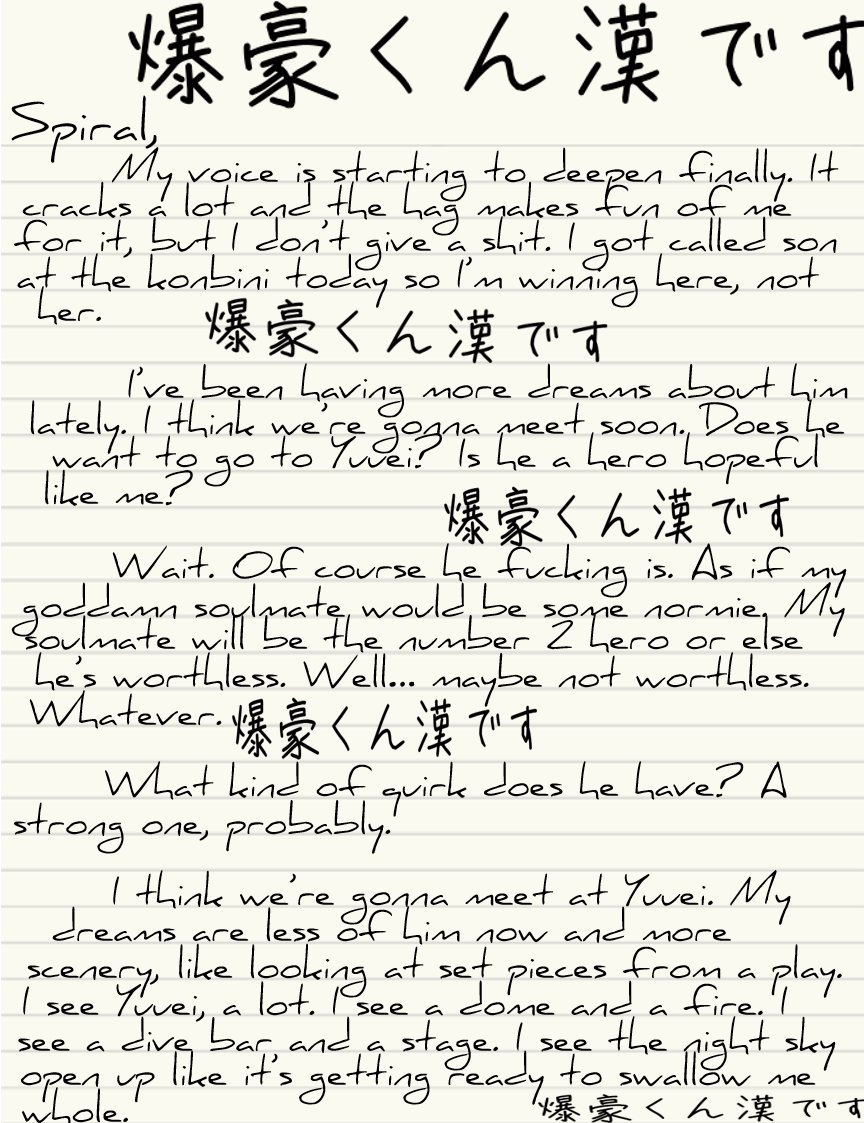 爆豪くん漢です
Spiral,
My voice is starting to deepen finally. It
cracks a lot and the hag makes fun of me
for it, but I don't give a shit. I got called son
at the konbini today so I'm winning here, not
her.
爆豪くん漢です
I've been having more dreams about him
lately. I think we're gonna meet soon. Does he
want to go to Yuuei? Is he a hero hopeful
like me?
爆豪くん漢です
Wait. Of course he fucking is. As if my
goddamn soulmate would be some normie. My
soulmate will be the number 2 hero or else
he's worthless. Well... maybe not worthless.
Whatever. 爆豪くん漢です
What kind of quirk does he have? A
strong one, probably.
I think we're gonna meet at Yuuei. My
dreams are less of him now and more
scenery, like looking at set pieces from a play.
I see Yuuei, a lot. I see a dome and a fire. I
see a dive bar and a stage. I see the night sky
open up like it's getting ready to swallow me
whole. 爆豪くん漢です